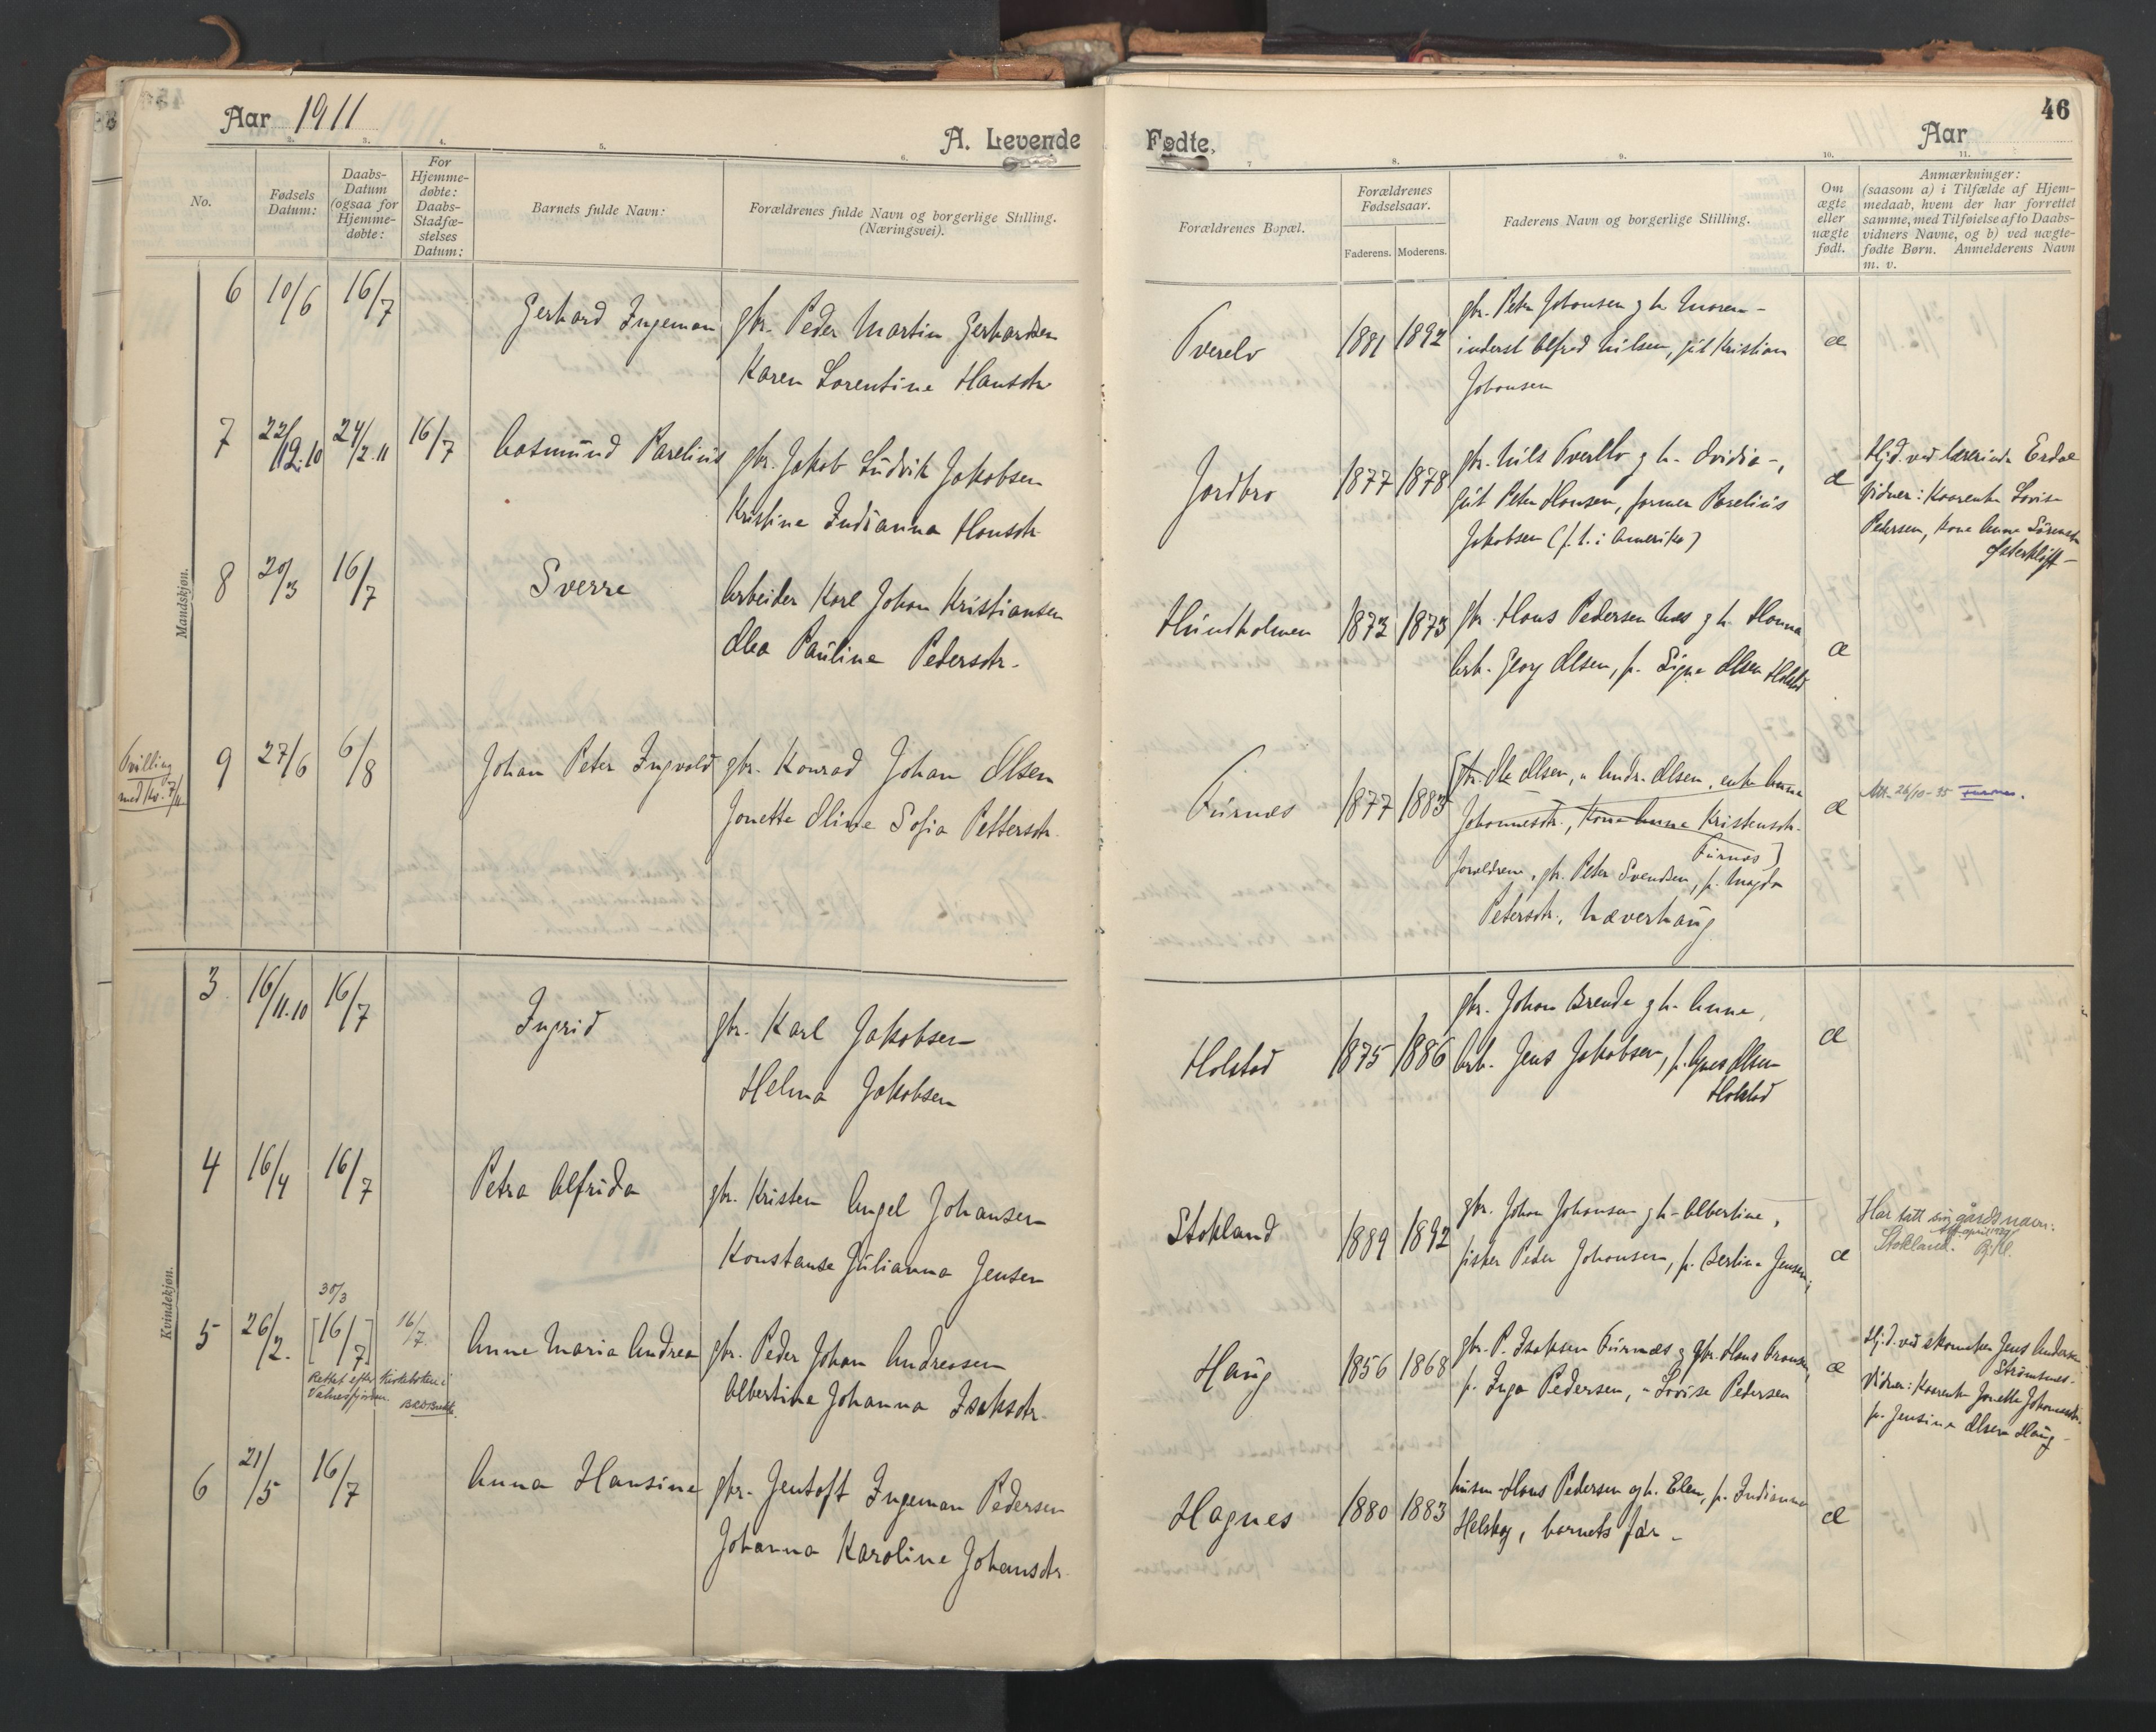 Aar 1911
A. Levende
Fødte.
Aar
46
No.
Fødsels Datum:
Daabs-Datum (ogsaa for Hjemme-døbte:
For Hjemme-døbte: Daabs-Stadfæ-stelses Datum:
Barnets fulde Navn:
Forældrenes fulde Navn og borgerlige Stilling. (Næringsvei).
Forældrenes Bopæl.
Forældrenes Fødselsaar.
Faderens. Moderens.
Faderens Navn og borgerlige Stilling.
Om ægte eller uægte født.
Anmærkninger:
(saasom a) i Tilfælde af Hjem-
medaab, hvem der har forrettet
samme, med Tilføielse af to Daabs-
vidners Navne, og b) ved uægte-
fødte Børn. Anmelderens Navn
m. v.
Mandskjøn.
6 10/6 16/7 Gerhard Ingeman
gbr. Peder Martin Gerhardsen
Karen Lorentine Hansdtr
Tverelv 1881 1892
gbr. Peter Johansen g h. Maren -
inderst Alfred Nilsen, pit Kristian
Johansen
æ
7 22/12.10 24/2.11 16/7 Aasmund Parelius
gbr. Jakob Ludvik Jakobsen
Kristine Indianna Hansdtr
Jordbro 1877 1878
gbr. Nils Tverelv g h. Ovidia -,
pit Peter Hansen, farmen Parelius
Jakobsen (p. t. i Amerika)
æ
Hjd. ved lærerinde Erdal
Vidner: Kaarenke Lovise
Pedersen, kone Anna Sörensdtr
Østerkløft -
8 20/3 16/7 Sverre
Arbeider Karl Johan Kristiansen
Olea Pauline Pedersdtr.
Hundholmen 1873 1873
gbr. Hans Pedersen Næs g h. Hanna
Arb. Georg Olsen, p. Signe Olsen Holstad
æ
Tvilling
med Kv. 7/11
9 27/6 6/8 Johan Peter Ingvald
gbr. Konrad Johan Olsen
Jonette Oline Sofia Pettersdtr.
Furnes 1877 1883
[gbr. Ole Olsen, " Andr. Olsen, enke Anna
Johannesdtr., Kone Anna Kristensdtr.
Furnes]
Forældrene, gbr. Peter Svendsen, p. Magda
Petersdtr. Næverhaug
æ
Att. 26/10-45 Furnes.
Kvindekjøn.
3 16/11.10 16/7 Ingrid
gbr. Karl Jakobsen
Helma Jakobsen
Holstad 1875 1886
gbr. Johan Brende g h. Anna,
Arb. Jens Jakobsen, p. Agnes Olsen
Holstad
æ
4 16/4 16/7 Petra Alfrida
gbr. Kristen Angel Johansen
Konstanse Julianna Jensen
Stokland 1889 1892
gbr. Johan Johansen g h. Albertine,
fisker Peder Johansen, p. Bertine Jensen,
æ
Har tatt sin gårdsnavn:
Stokland.
5 26/2. 30/3 [16/7] 16/7. Anne Maria Andrea
Rettet efter Kirkeboken i
Valnesfjorden
gbr. Peder Johan Andreasen
Albertine Johanna Isaksdtr.
Haug 1856 1868
gbr. P. Isaksen Furnæs g gbr. Hans Fransen,
p. Inga Pedersen, " Lovise Pedersen
æ
Hj.d. ved skomaker Jens Andersen
Strömsnes.
Vidner: Kaarenke Jonette Johannesdtr.
p. Jensine Olsen Haug -
6 21/5 16/7 Anna Hansine
gbr. Jentoft Ingeman Pedersen
Johanna Karoline Johansdtr.
Hagnes 1880 1883
husm. Hans Pedersen og h. Elen, p. Indianna
Helskog, barnets far -
æ